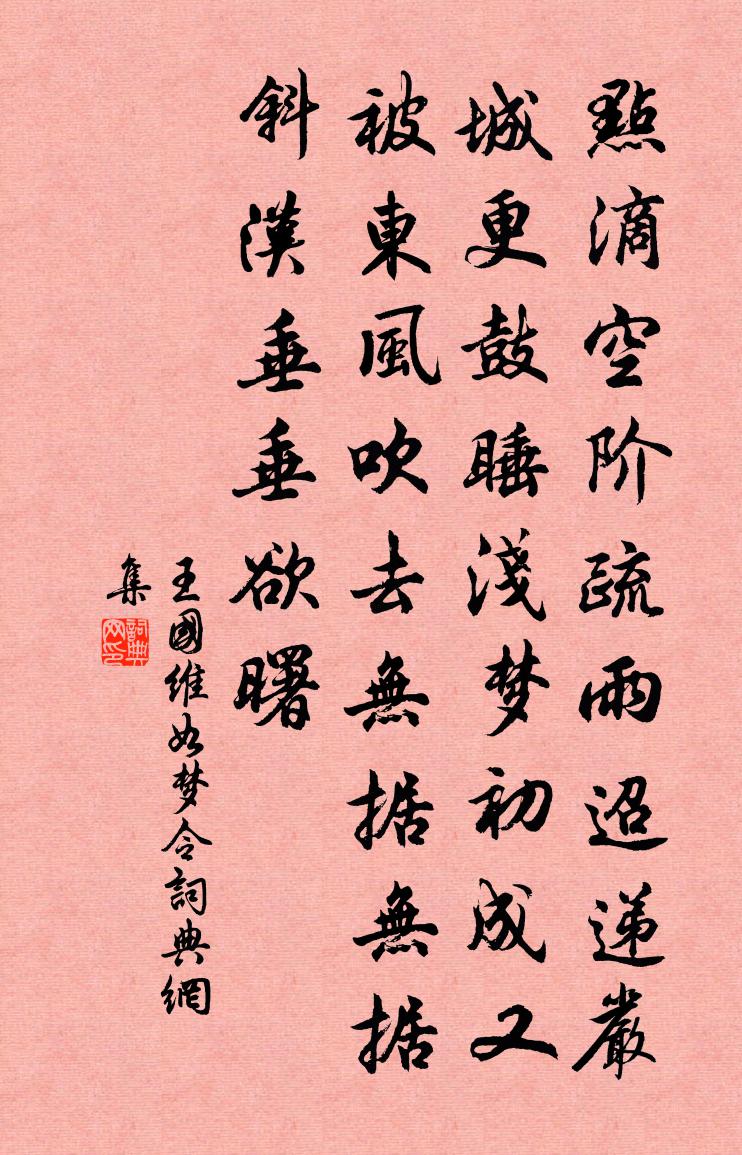 點滴空阶疏雨迢递嚴
城更鼓睡淺梦初成又
被東風吹去無据無据
斜漢垂垂欲曙
王國維如梦令詞典網
集
詞典
网印